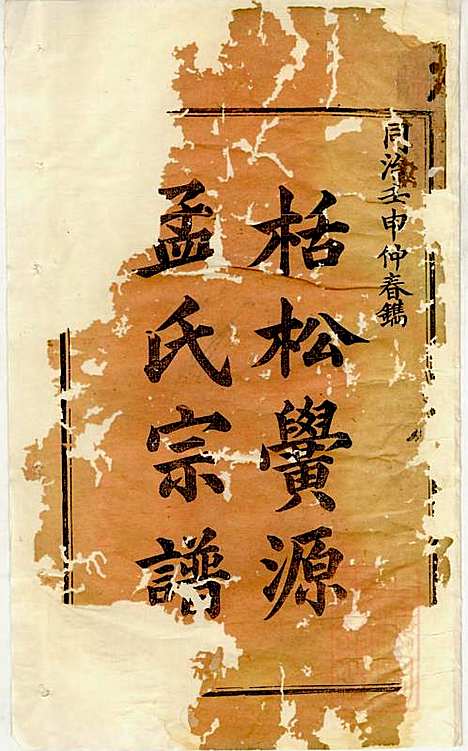 同治壬申仲春鐫
栝松黌源
孟氏宗譜